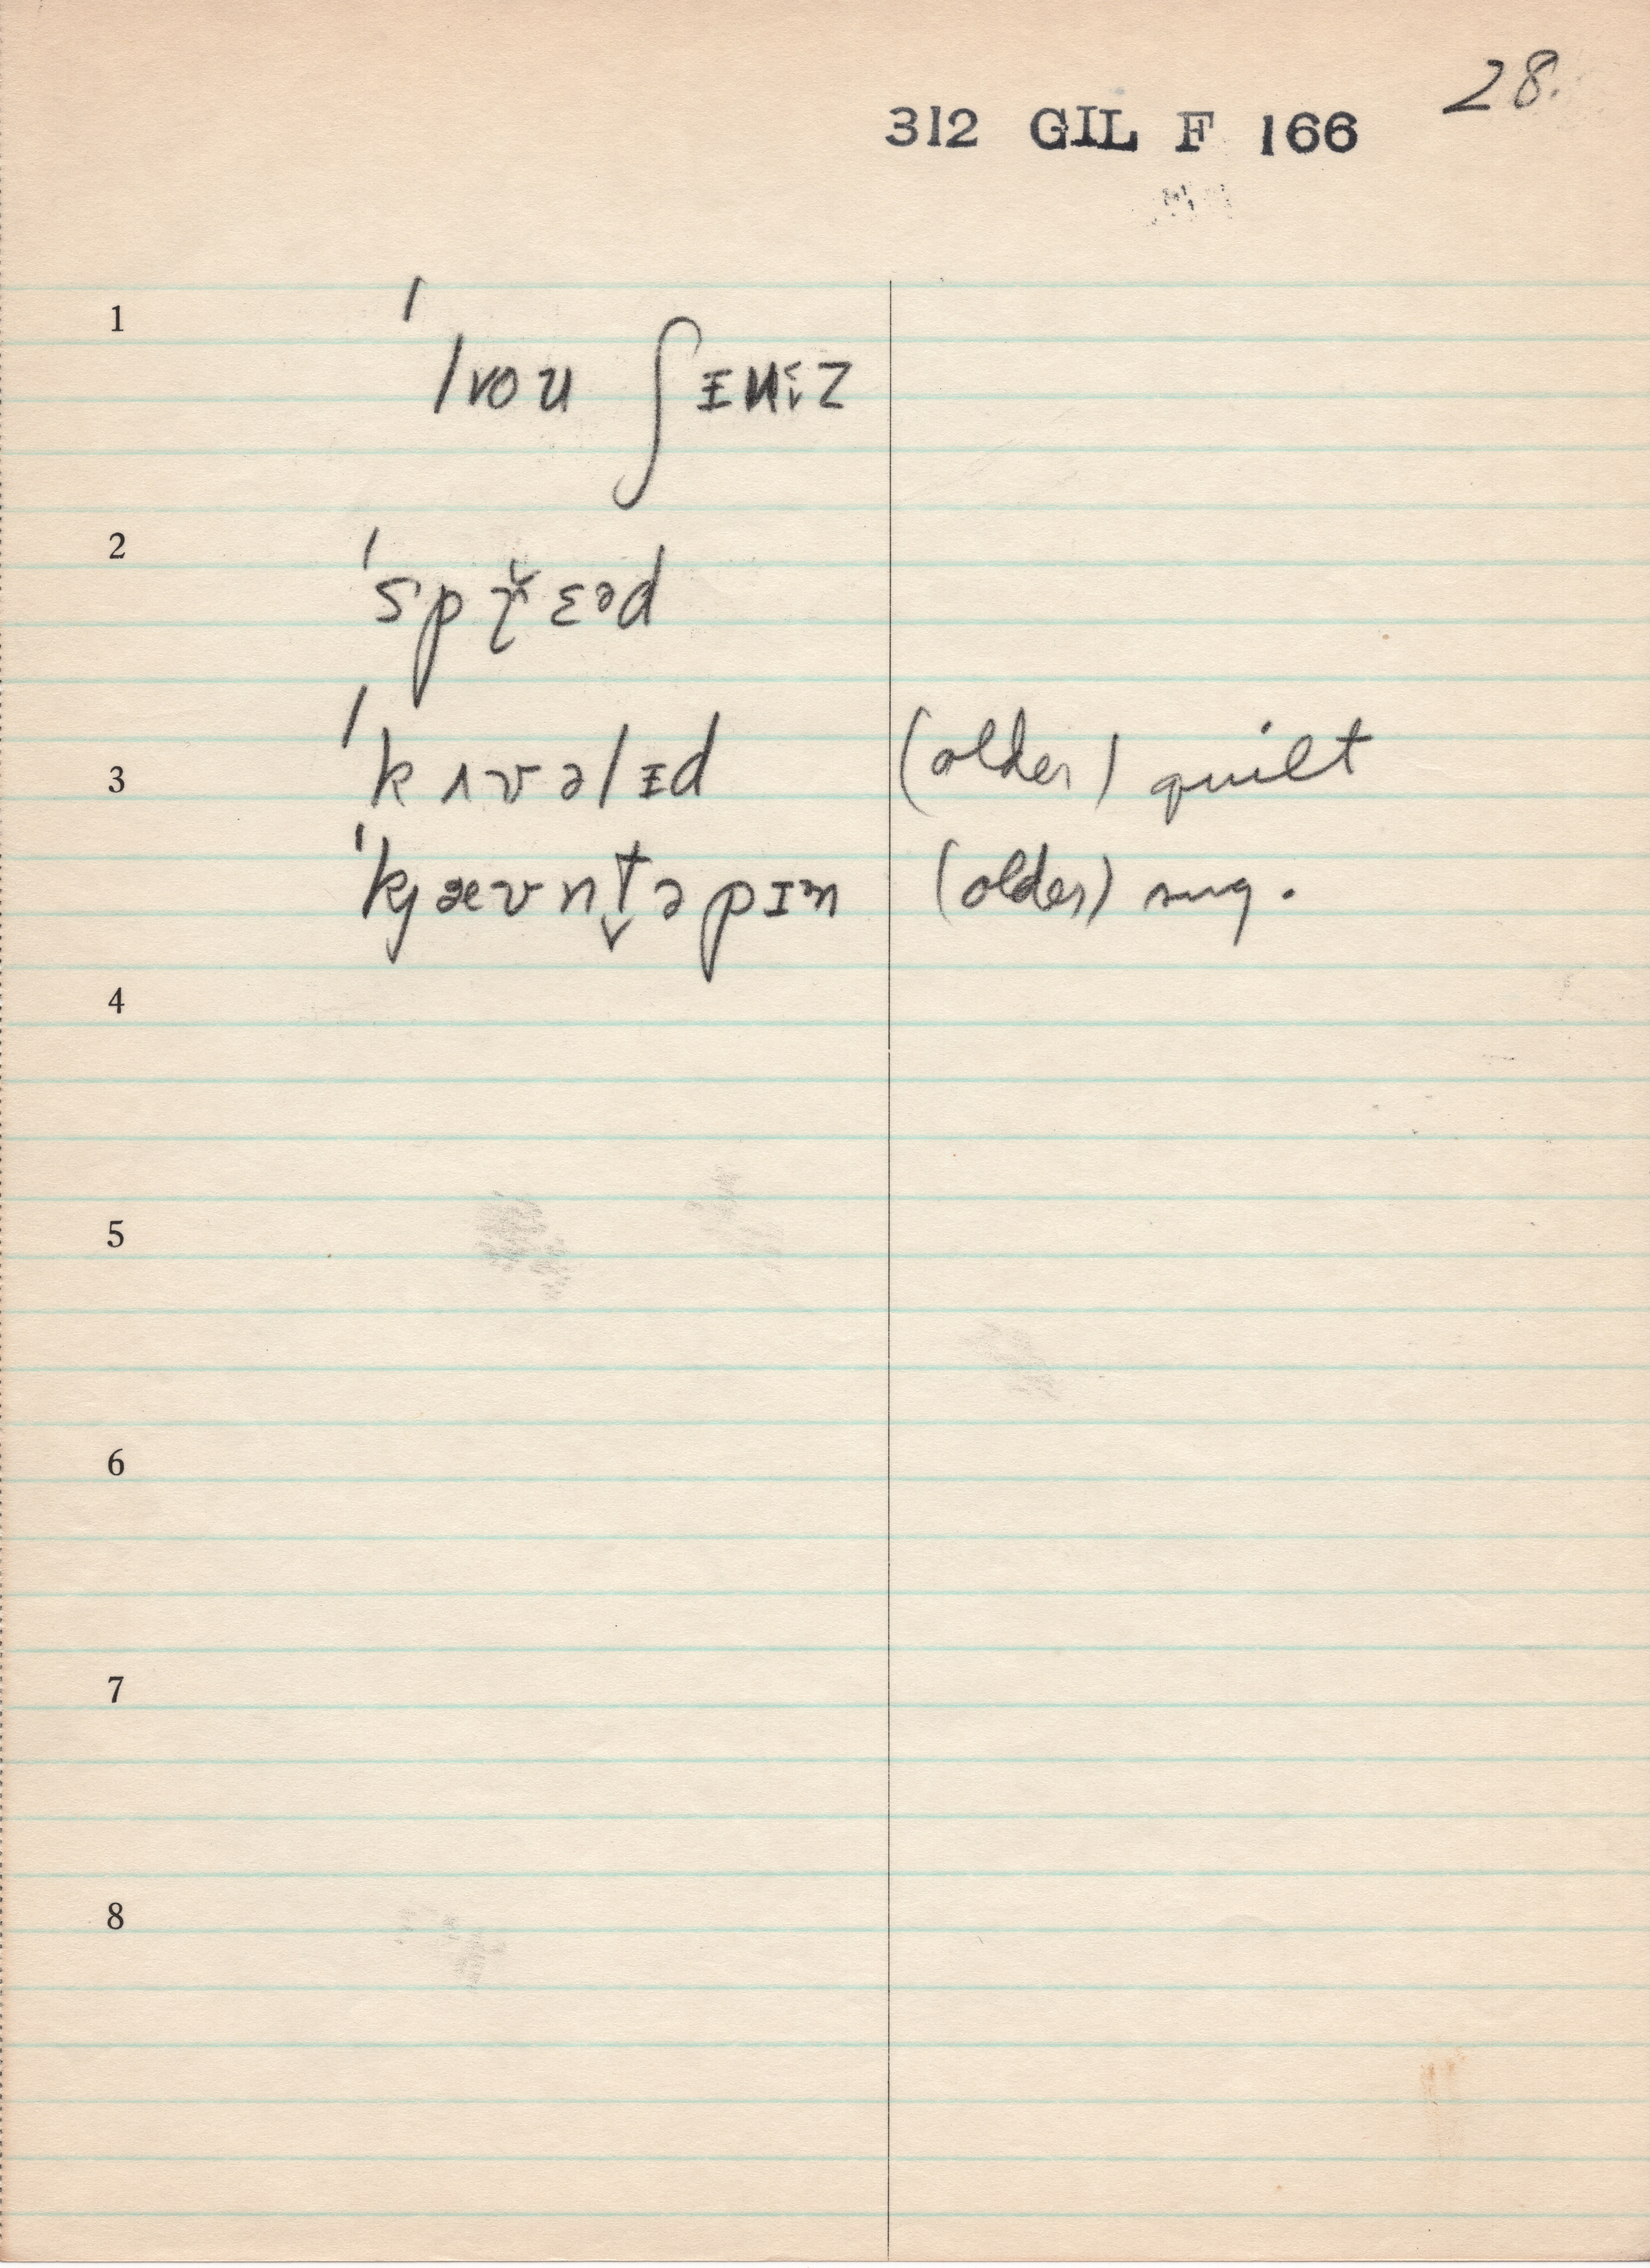 28.
312 GIL F 166
1
ˈlvoʊ ʃɪni̬z
2
ˈspɽ̌ɛəd
3
ˈkʌvəlɪd (older) quilt
ˈkjævn̩t̬əpɪn (older) sug.
4
5
6
7
8